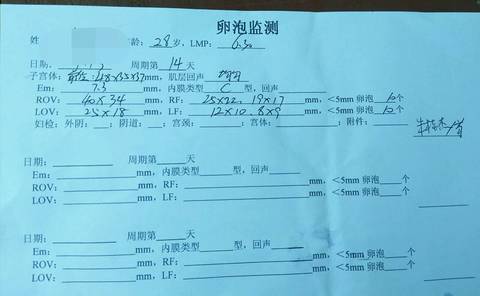 卵泡监测
姓 龄: 28 岁, LMP: 6.30
日期: 周期第 14 天
子宫体: 前位: 48×33×37 mm, 肌层回声 均匀
Em: 7.3 mm, 内膜类型 C 型, 回声
ROV: 40×34 mm, RF: 25×22, 19×17 mm, <5mm 卵泡 10 个
LOV: 25×18 mm, LF: 12×10, 8×9 mm, <5mm 卵泡 10 个
妇检: 外阴: ; 阴道: ; 宫颈: ; 宫体: ; 附件:
日期: 周期第 天
Em: mm, 内膜类型 型, 回声
ROV: mm, RF: mm, <5mm 卵泡 个
LOV: mm, LF: mm, <5mm 卵泡 个
日期: 周期第 天
Em: mm, 内膜类型 型, 回声
ROV: mm, RF: mm, <5mm 卵泡 个
LOV: mm, LF: mm, <5mm 卵泡 个